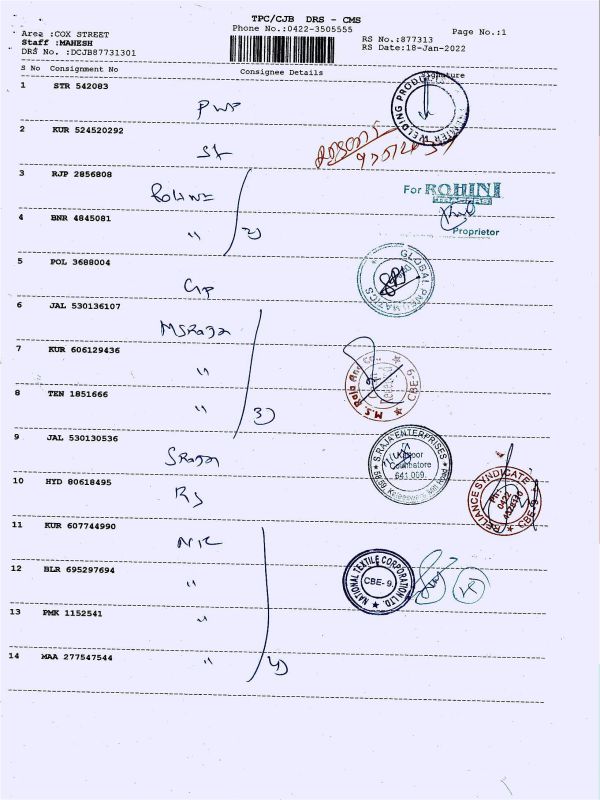 TPC/CJB DRS - CMS
Phone No.:0422-3505555
Page No.:1
Area :COX STREET
Staff :MAHESH
DRS No. :DCJB87731301
RS No.:877313
RS Date:18-Jan-2022
S No Consignment No Consignee Details Signature
1 STR 542083
PWP
WELDING PRODUC
2 KUR 524520292
3 RJP 2856808
For ROHINI
4 BNR 4845081
" 2)
Proprietor
5 POL 3688004
GLOBAL PNEUMATICS
6 JAL 530136107
MSRaja
7 KUR 606129436
"
M.S. Raja And Co., CBE-9
8 TEN 1851666
" 3)
9 JAL 530130536
SRaja
S.RAJA ENTERPRISES
Coimbatore
641 009.
10 HYD 80618495
RS
RELIANCE SYNDICATE
Ph:
0422
CBE-9
11 KUR 607744990
NTC
12 BLR 695297694
"
NATIONAL TEXTILE CORPORATION LTD.
CBE-9.
13 PMK 1152541
"
14 MAA 277547544
" 4)